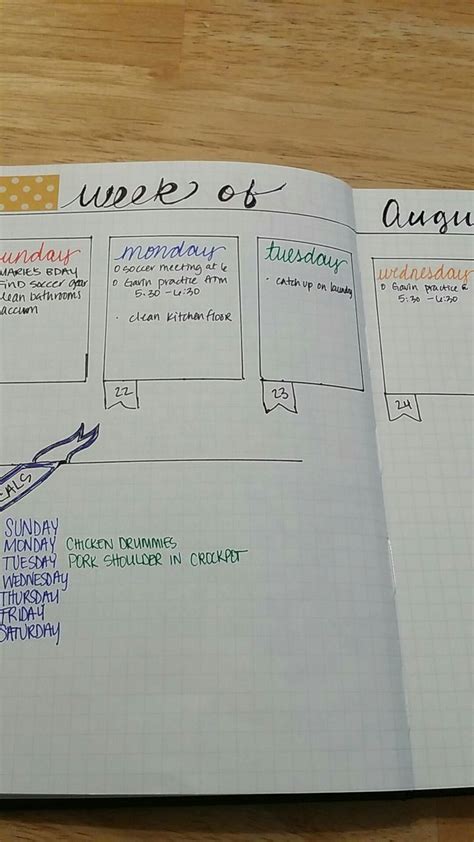 week of
Augu
unday
MARIES BDAY
find soccer gear
lean bathrooms
accum
monday
o soccer meeting at 6
o Gavin practice ATM
5:30 - 6:30
· clean kitchen floor
22
tuesday
· catch up on laundry
23
wednesday
o Gavin practice @
5:30 - 6:30
24
EALS
SUNDAY
MONDAY CHICKEN DRUMMIES
TUESDAY PORK SHOULDER IN CROCKPOT
WEDNESDAY
THURSDAY
FRIDAY
SATURDAY